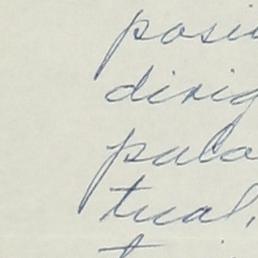 posi
dirig
pala
tual,